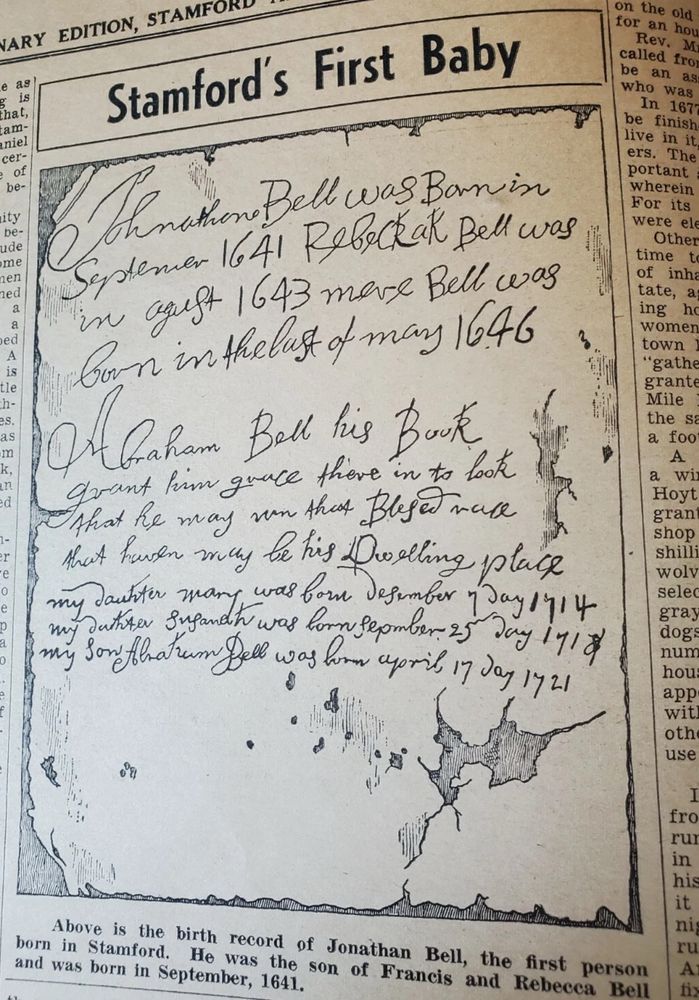 NARY EDITION, STAMFORD
Stamford's First Baby
Johnathane Bell was Born in
Septemer 1641 Rebeckah Bell was
in agust 1643 mere Bell was
born in the last of may 1646
Abraham Bell his Book
grant him grace there in to look
that he may run that Blesed race
that haven may be his Dwelling place
my dauhter mary was born Desember 7 Day 1714
my dauhter Susanah was born sepmber 25 day 171
my Son Abraham Bell was born april 17 day 1721
Above is the birth record of Jonathan Bell, the first person
born in Stamford. He was the son of Francis and Rebecca Bell
and was born in September, 1641.
on the old
for an hou
Rev. M
called fro
be an as
who was
In 1677
be finish
live in it,
ers. The
portant
wherein
For its
were ele
Other
time to
of inha
tate, a
ing ho
women
town
"gathe
grante
Mile
the sa
a foo
A
a wi
Hoyt
gran
shop
shilli
wolv
selec
gray
dogs
num
hous
app
wit
oth
use
fro
run
in
his
it
nig
ru